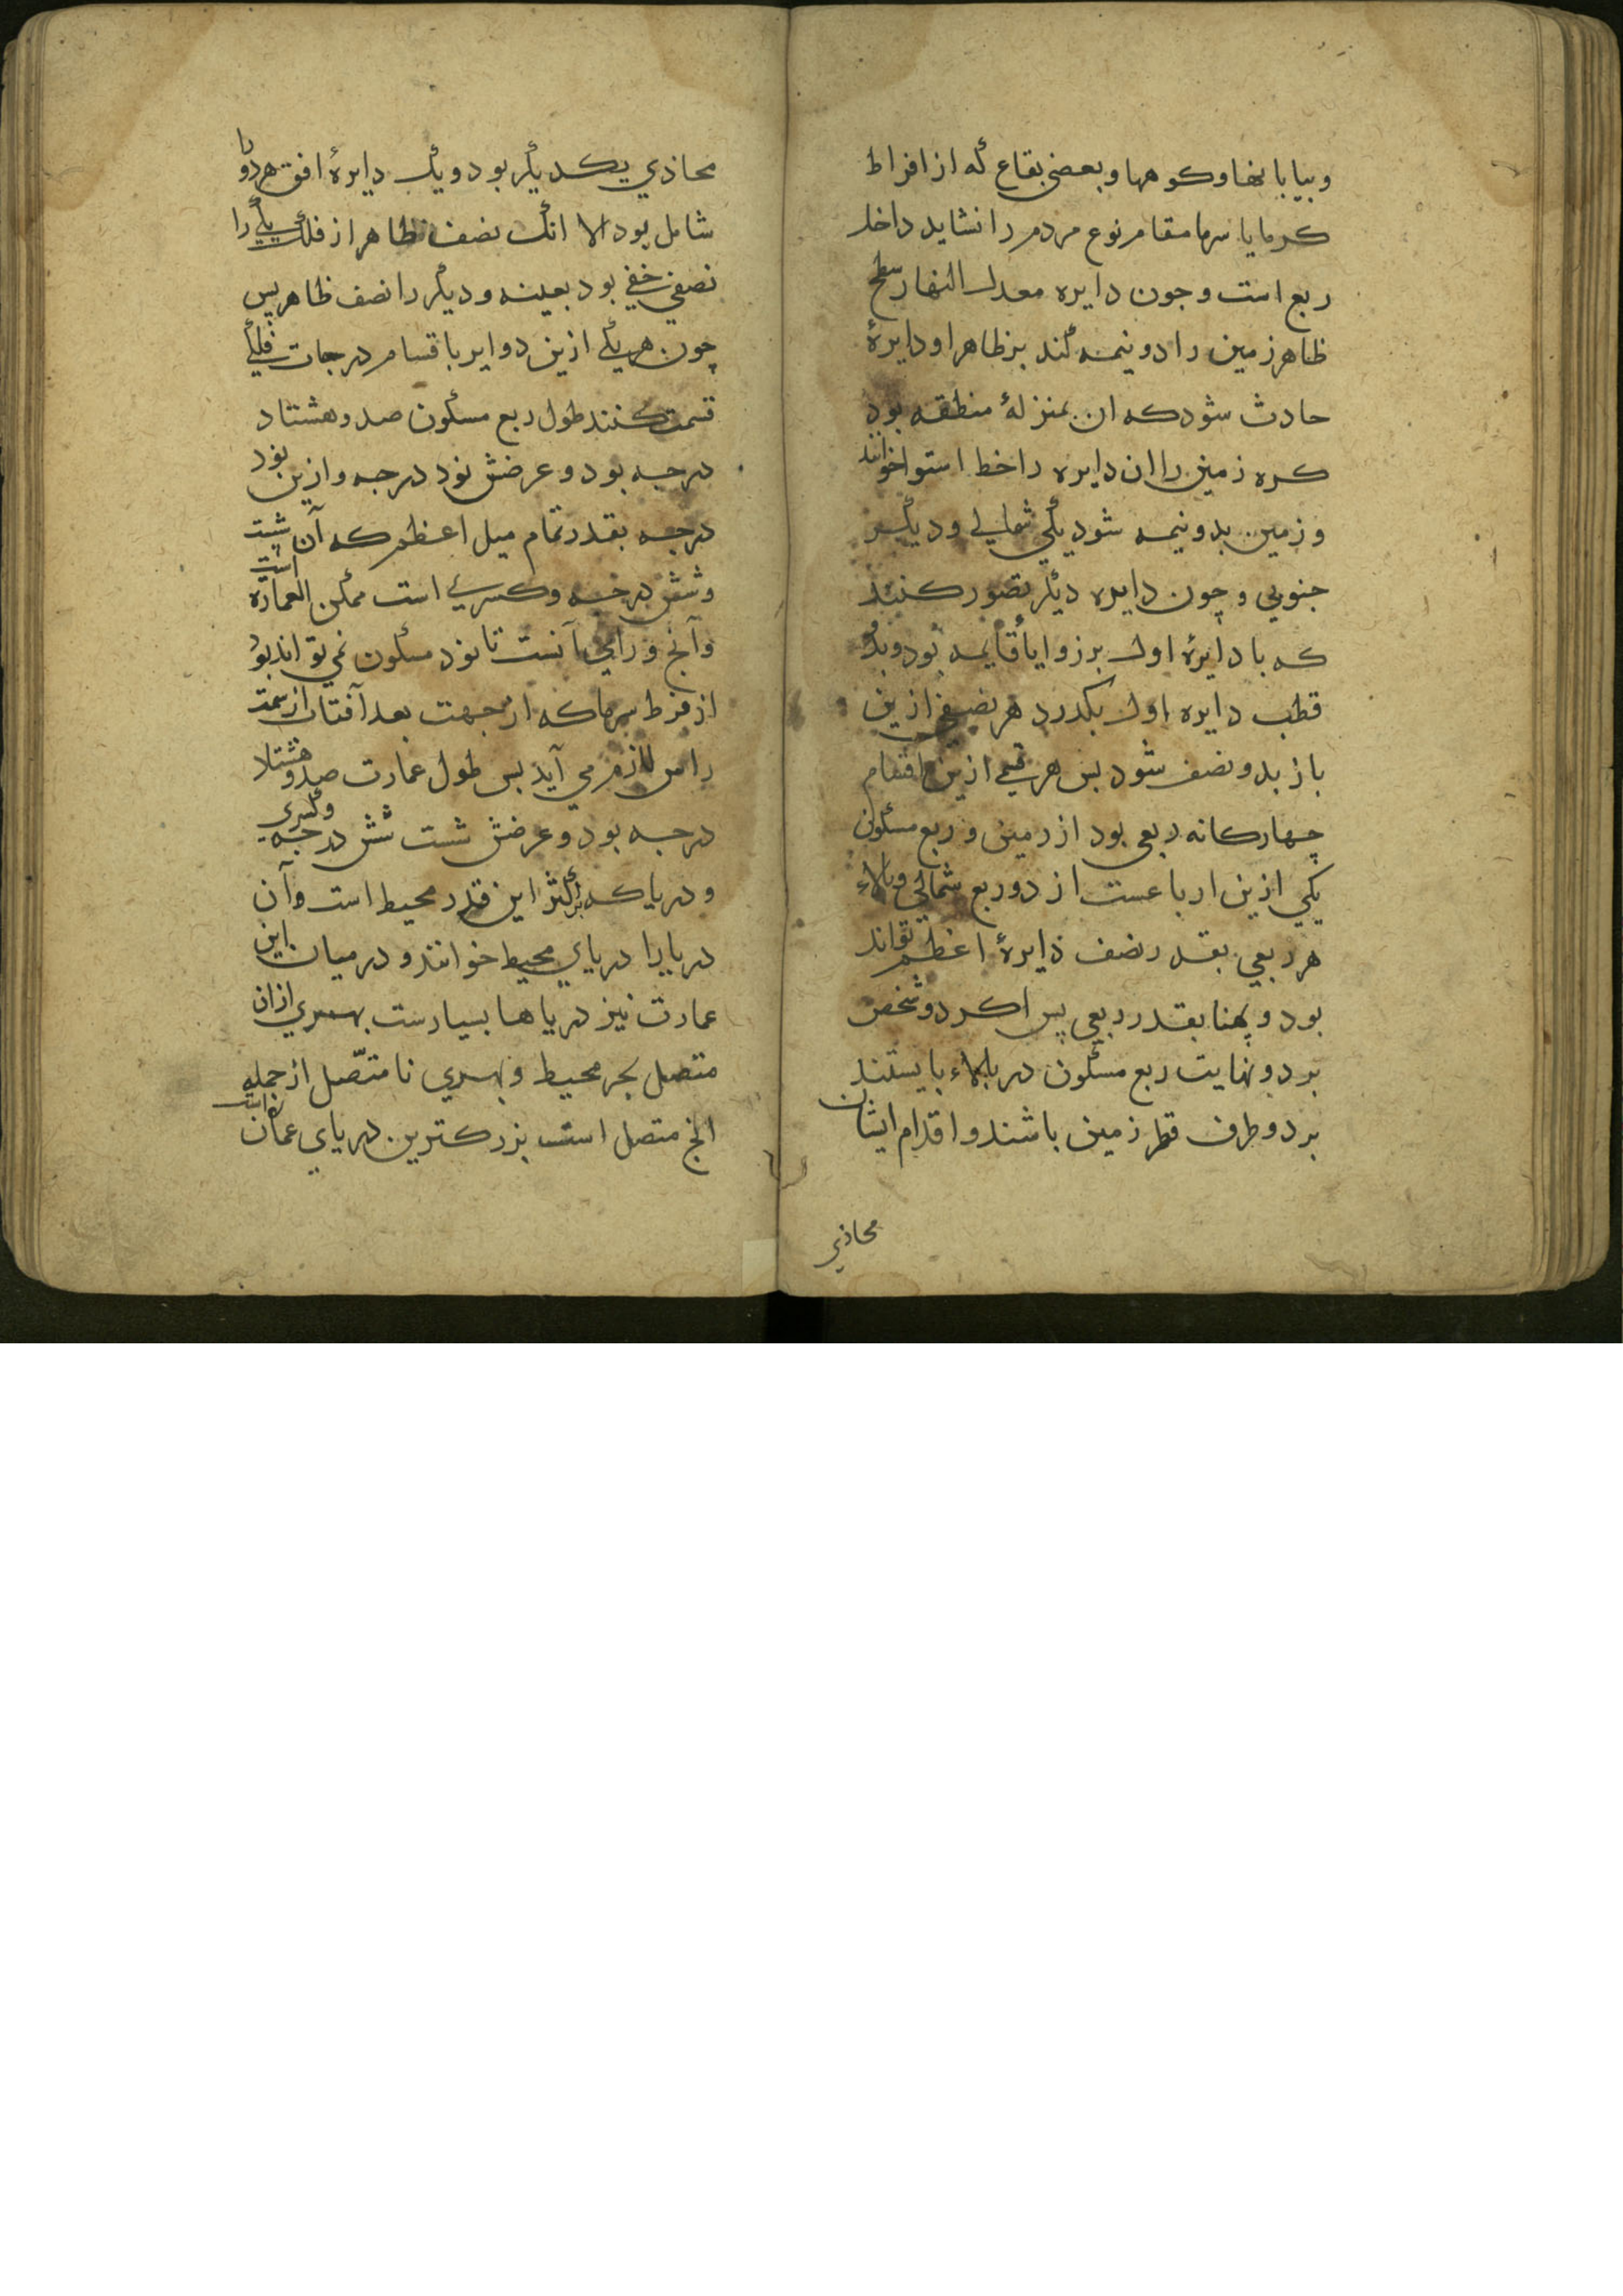 وبیابانها وکوهها وبعضی بقاع که از افراط
کرما یا سرما مقام نوع مردم را نشاید داخل
ربع است وجون دایره معدل النهار سطح
ظاهر زمین را دو نیمه کند بر ظاهر او دایرۀ
حادث شود که ان بمنزلۀ منطقه بود
کره زمین را ان دایره را خط استوا خوانند
و زمین بدو نیمه شود یکی شمالی ودیکر
جنوبي و چون دایره دیکر تصور کنند
که با دایرۀ اول بر زوایا قایمه بود وبدو
قطب دایره اول بکدرد هر نصفی ازین
باز بدو نصف شود بس هر قسمی ازین اقسام
چهارکانه ربعی بود از زمین و ربع مسکون
یکي ازین ارباعست از دو ربع شمالي وبالاء
هر ربعي بقدر نصف دایرۀ اعظم تواند
بود و پهنا بقدر ربعي پس اکر دو شخص
بر دو نهایت ربع مسکون در بالاء بایستند
بر دو طرف قطر زمین باشند و اقدام ایشان
محاذي
محاذي یکدیکر بود ویک دایرۀ افق هردو را
شامل بود الا انک نصف ظاهر از فلک یکی را
نصفي خفي بود بعینه ودیکر را نصف ظاهر پس
چون هریکی ازین دوایر باقسام درجات فلکی
قسمت کنند طول ربع مسکون صد وهشتاد
درجه بود و عرضش نود درجه وازین نود
درجه بقدر تمام میل اعظم که آن شت
وشش درجه وکسري است ممکن العمارة است
وآنج وراي آنست تا نود مسکون نمي تواند بود
از فرط سرما که از جهت بعد آفتاب از سمت
راس لازم مي آید بس طول عمارت صد وهشتاد
درجه بود و عرضش شست شش درجه وکسری
ودریا که بر اکثر این قدر محیط است وآن
دریا را دریاي محیط خوانند و در میان این
عمارت نیز دریاها بسیارست بهري ازان
متصل بحر محیط و بهري نامتّصل از جمله
انج متصل است بزرکترین دریاي عمان است